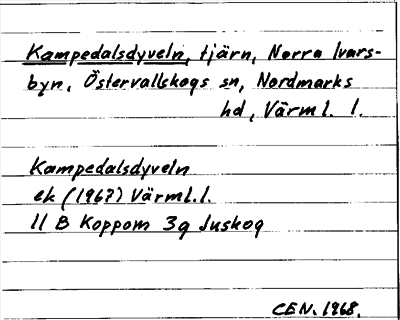 Kampedalsdyveln, tjärn, Norra Ivars-
byn, Östervallskogs sn, Nordmarks
hd, Värml. l.
Kampedalsdyveln
ek (1967) Värml. l.
11 B Koppom 3g Juskog
CEN. 1968.